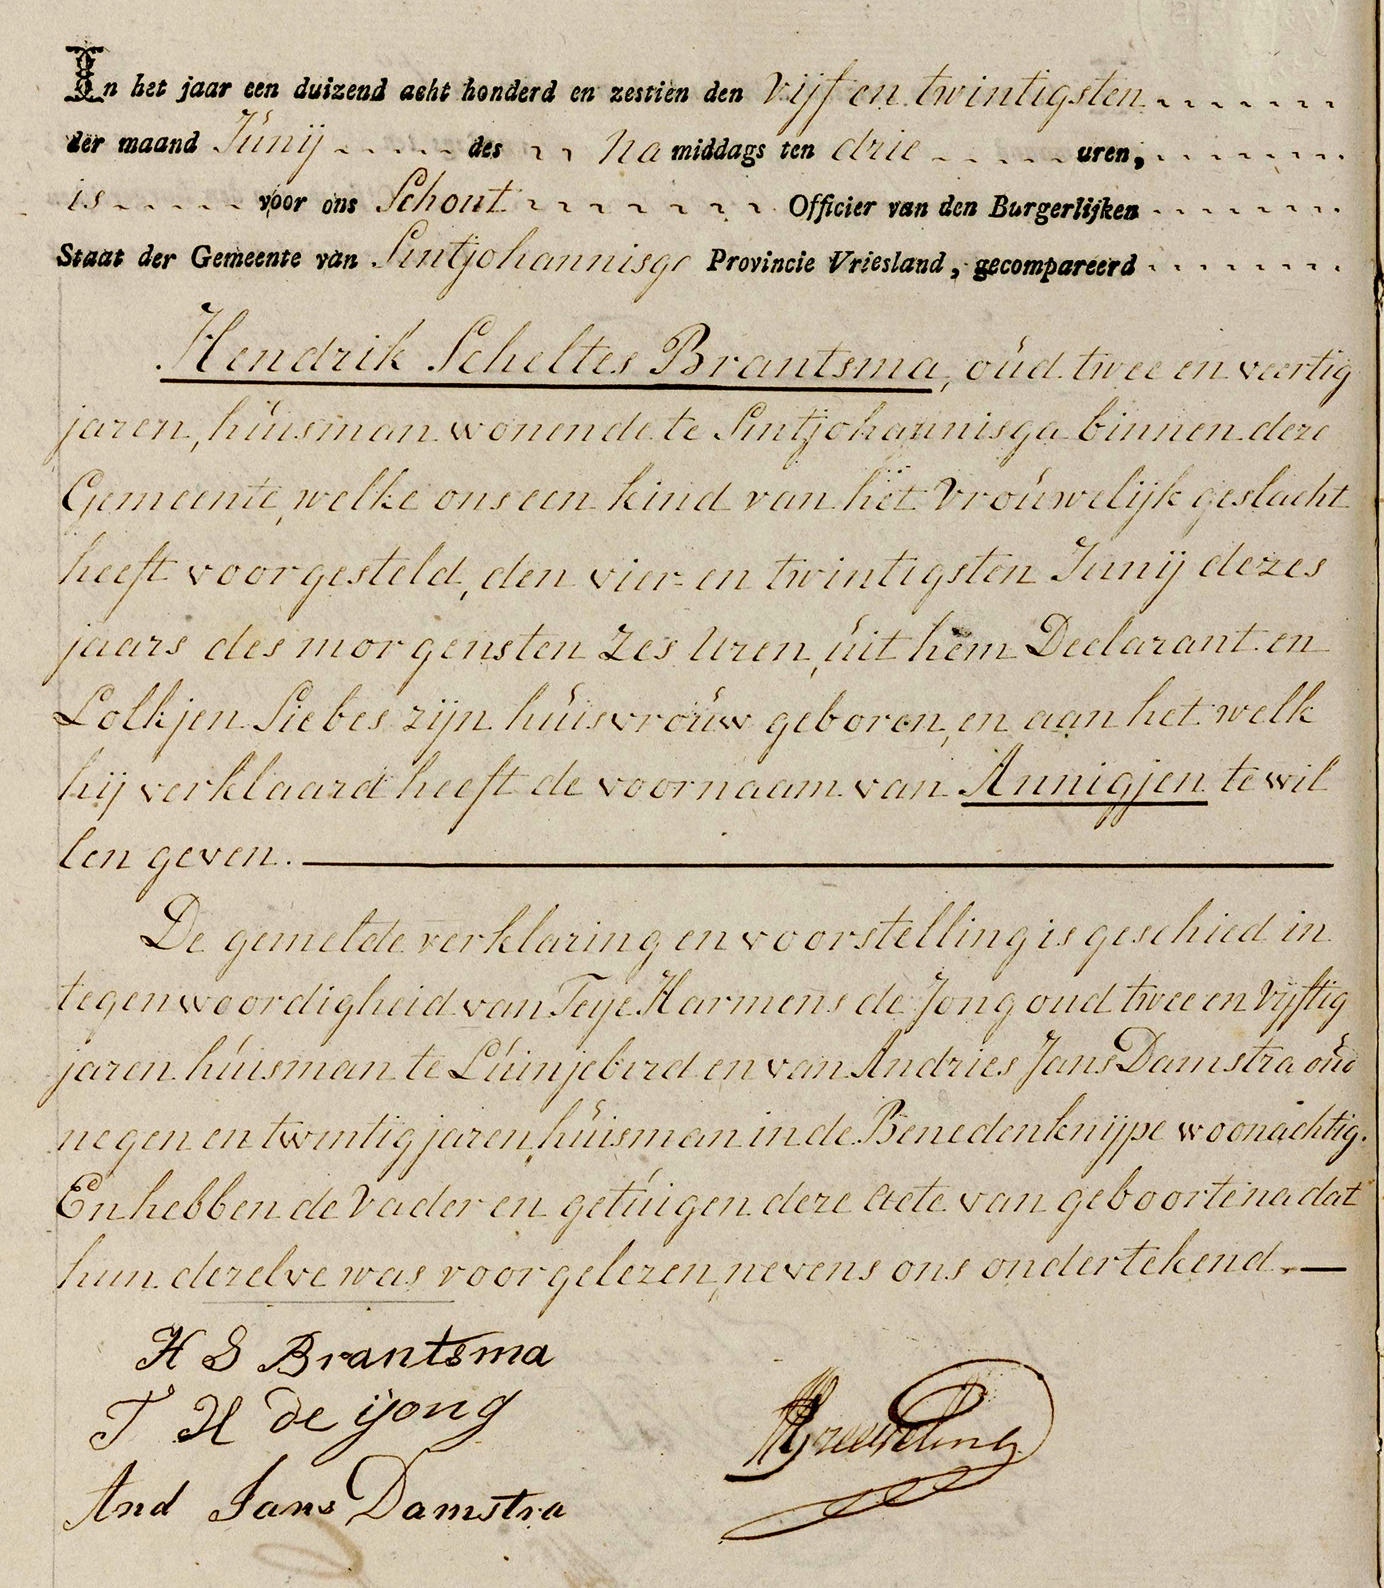 In het jaar een duizend acht honderd en zestien den Vijf en twintigsten
der maand Junij des Na middags ten drie uren,
is voor ons Schout Officier van den Burgerlijken
Staat der Gemeente van Sintjohannisga Provincie Vriesland, gecompareerd
Hendrik Scheltes Brantsma, oud twee en veertig
jaren, huisman wonende te Sintjohannisga binnen deze
Gemeente, welke ons een kind van het Vrouwelijk geslacht
heeft voorgesteld, den vier en twintigsten Junij dezes
jaars des morgens ten Zes Uren, uit hem Declarant en
Lolkjen Siebes zijn huisvrouw geboren, en aan het welk
hij verklaard heeft de voornaam van Annigjen te wil
len geven.
De gemelde verklaring en voorstelling is geschied in
tegenwoordigheid van Teije Harmens de Jong oud twee en Vijftig
jaren huisman te Luinjeberd en van Andries Jans Damstra oud
negen en twintig jaren, huisman in de Benedenknijpe woonachtig.
En hebben de Vader en getuigen deze Acte van geboorte na dat
hun dezelve was voorgelezen, nevens ons ondertekend
H S Brantsma
T H de ijong
And Jans Damstra